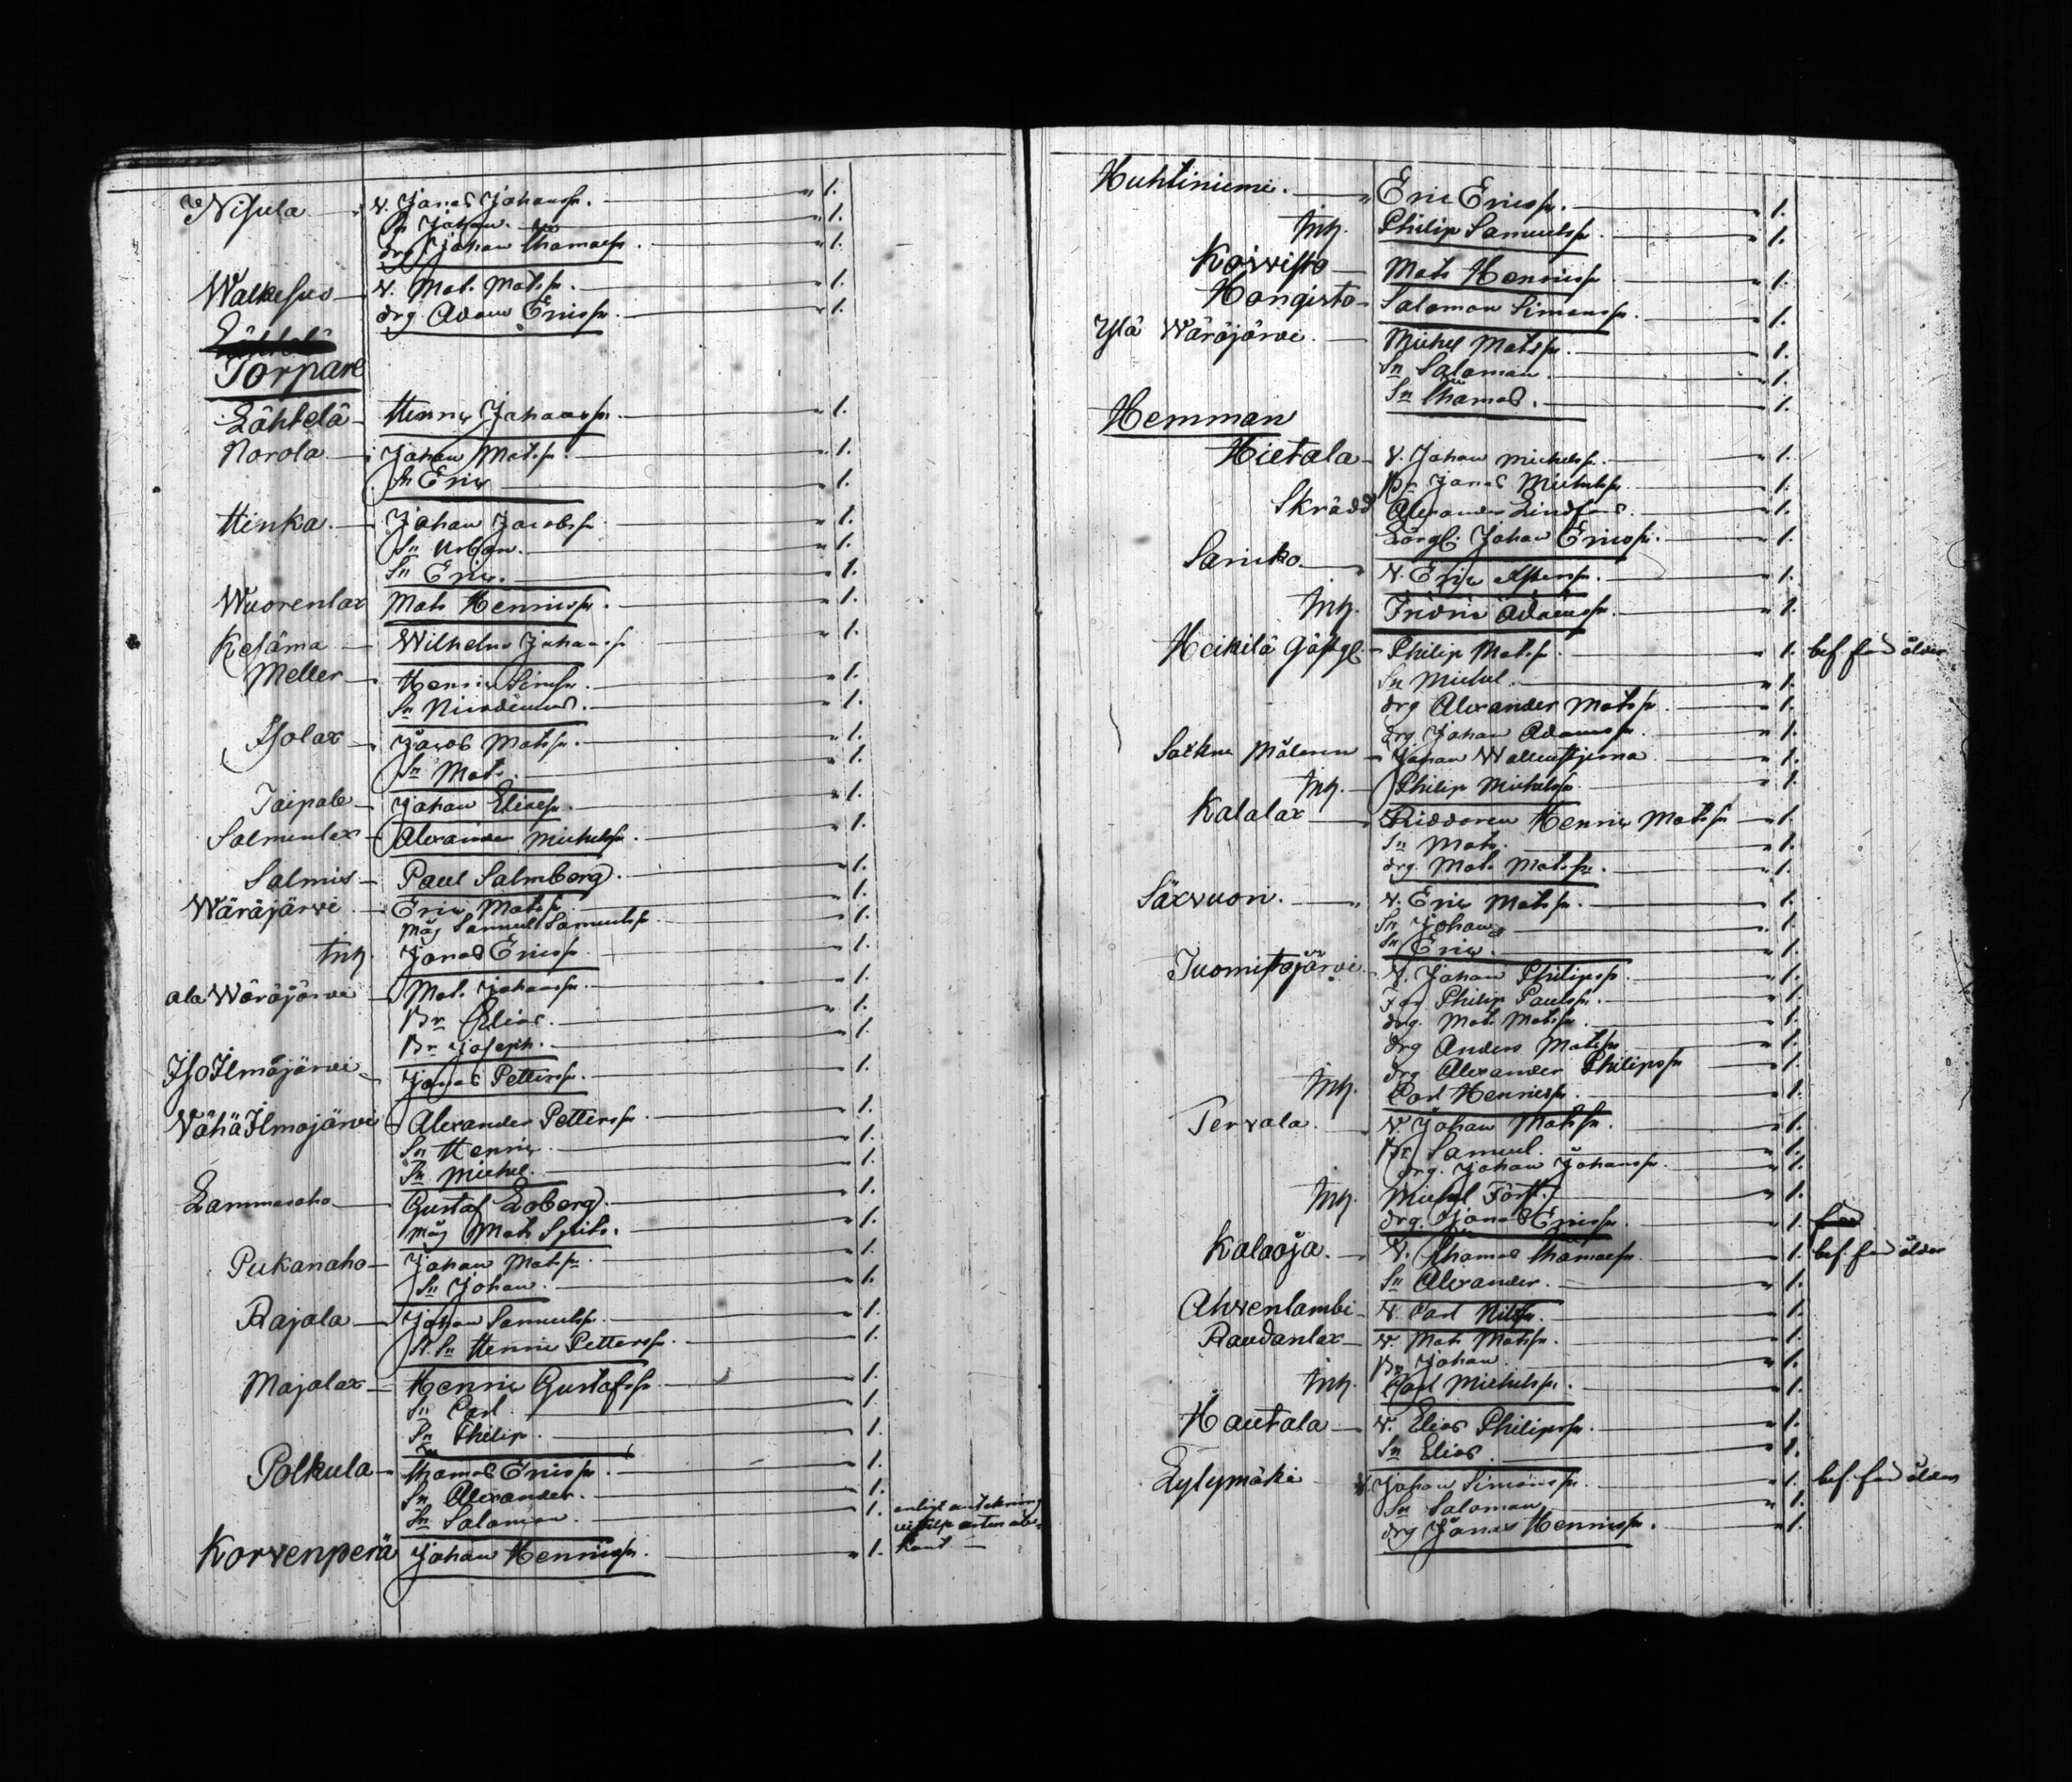 Nisula v. Jonas Johanss. " 1.
Sn Johan. " 1.
drg Johan Thomass. " 1.
Walkesuo v. Mat. Matss. " 1.
drg. Adam Ericss. " 1.
Lähtelä
Torpare
Lähtelä Henric Johanss. " 1.
Norola Johan Matss. " 1.
Sn Eric " 1.
Hinka. Johan Jacobss. " 1.
Sn Urban. " 1.
Sn Eric. " 1.
Wuorenlax Mats Henricss. " 1.
Kesäma Wilhelm Johanss " 1.
Meller Henric Simss. " 1.
Sn Nicodemus. " 1.
Isolax Jacob Matss. " 1.
Sn Mat. " 1.
Taipale Johan Eliass. " 1.
Salmenlax Alexander Michelss. " 1.
Salmis Paul Salmberg. " 1.
Wäräjärvi Eric Matss. " 1.
Måg Samuel Samuelss. " 1.
Inh. Jonas Ericss. " 1.
ala Wäräjärvi Mat. Johanss. " 1.
Br Elias. " 1.
Br Joseph. " 1.
Iso Ilmojärvi Jonas Petterss. " 1.
Vähä Ilmojärvi Alexander Petterss. " 1.
Sn Henric " 1.
Sn Michel. " 1.
Lammasaho Gustaf Loberg. " 1.
Måg Mats Splits. " 1.
Pukanaho Johan Matss. " 1.
Sn Johan. " 1.
Rajala Johan Samuelss. " 1.
St. Sn Henric Petterss. " 1.
Majalax Henric Gustafss. " 1.
Sn Carl. " 1.
Sn Philip. " 1.
Polkula Thomas Ericss. " 1.
Sn Alexander. " 1.
Sn Salomon. " 1. enligt antekning
Korvenperä Johan Henricss. " 1.
Huhtiniemi. " Eric Ericss. " 1.
Inh. Philip Samuelss. " 1.
Koivisto Mats Henricss " 1.
Hongisto Salomon Simonss. " 1.
Ylä Wäräjärvi. Michel Matss. " 1.
Sn Salomon. " 1.
Sn Thomas. " 1.
Hemman
Hietala v. Johan Michelss. " 1.
Br Jonas Michelss. " 1.
Skrädd Alexander Lindfors. " 1.
Johan Ericss. " 1.
Sariko. v. Eric " 1.
Inh. Fridric Adamss. " 1.
Heikilä Gästg. Philip Matss. " 1. bef. för ålder
Sn Michel. " 1.
drg Alexander Matss. " 1.
drg Johan Adamss. " 1.
Målaren Johan " 1.
Inh. Philip Michelss " 1.
Kalalax Riddaren Henric Matss " 1.
Sn Mats. " 1.
drg. Mat. Matss. " 1.
Säxvuori. v. Eric Matss. " 1.
Sn Johan " 1.
Sn Eric. " 1.
Tuomistojärvi. v. Johan Philipss. " 1.
Far Philip Paulss. " 1.
drg. Mat. Matss. " 1.
drg Anders Matss. " 1.
drg Alexander Philipss " 1.
Inh. Carl Henricss. " 1.
Tervala. v. Johan Matss. " 1.
Br Samuel. " 1.
drg. Johan Johanss. " 1.
Inh. Michel Först. " 1.
drg. Jonas Ericss. " 1.
Kalaoja. v. Thomas Thomass. " 1. bef. för ålder
Sn Alexander. " 1.
Ahvenlambi v. Carl Nilss. " 1.
Raudanlax v. Mats Matss. " 1.
Br Johan. " 1.
Inh. Carl Michelss. " 1.
Hautala v. Elias Philipss. " 1.
Sn Elias. " 1.
Lylymäki v. Johan Simonss. " 1. bef. för ålder
Sn Salomon. " 1.
drg Jonas Henricss. " 1.